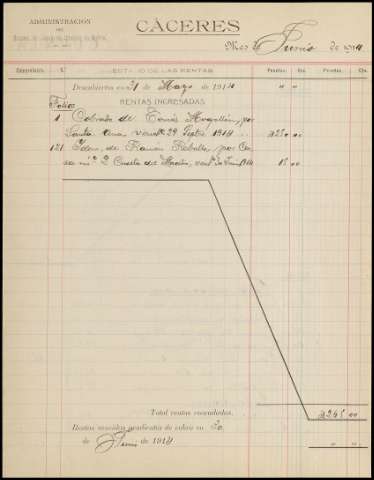 ADMINISTRACION
DEL
CÁCERES
Mes de Junio de 1914
Comprobante. N.º ESTADO DE LAS RENTAS Pesetas. Cts. Pesetas. Cts.
Descubiertos en 31 Mayo de 1914 " "
Folios RENTAS INGRESADAS
1 Cobrado de Tomás Mogollón, por
Santa Ana venció 29 Sepbre 1914 2250 00
121 Idem, de Ramón Rebollo, por Ca
sa nº 2 Cuesta del Maestre, 30 Junio 1914 15 00
Total rentas recaudadas. 2265 00
Rentas vencidas pendientes de cobro en 30
de Junio de 1914 " "